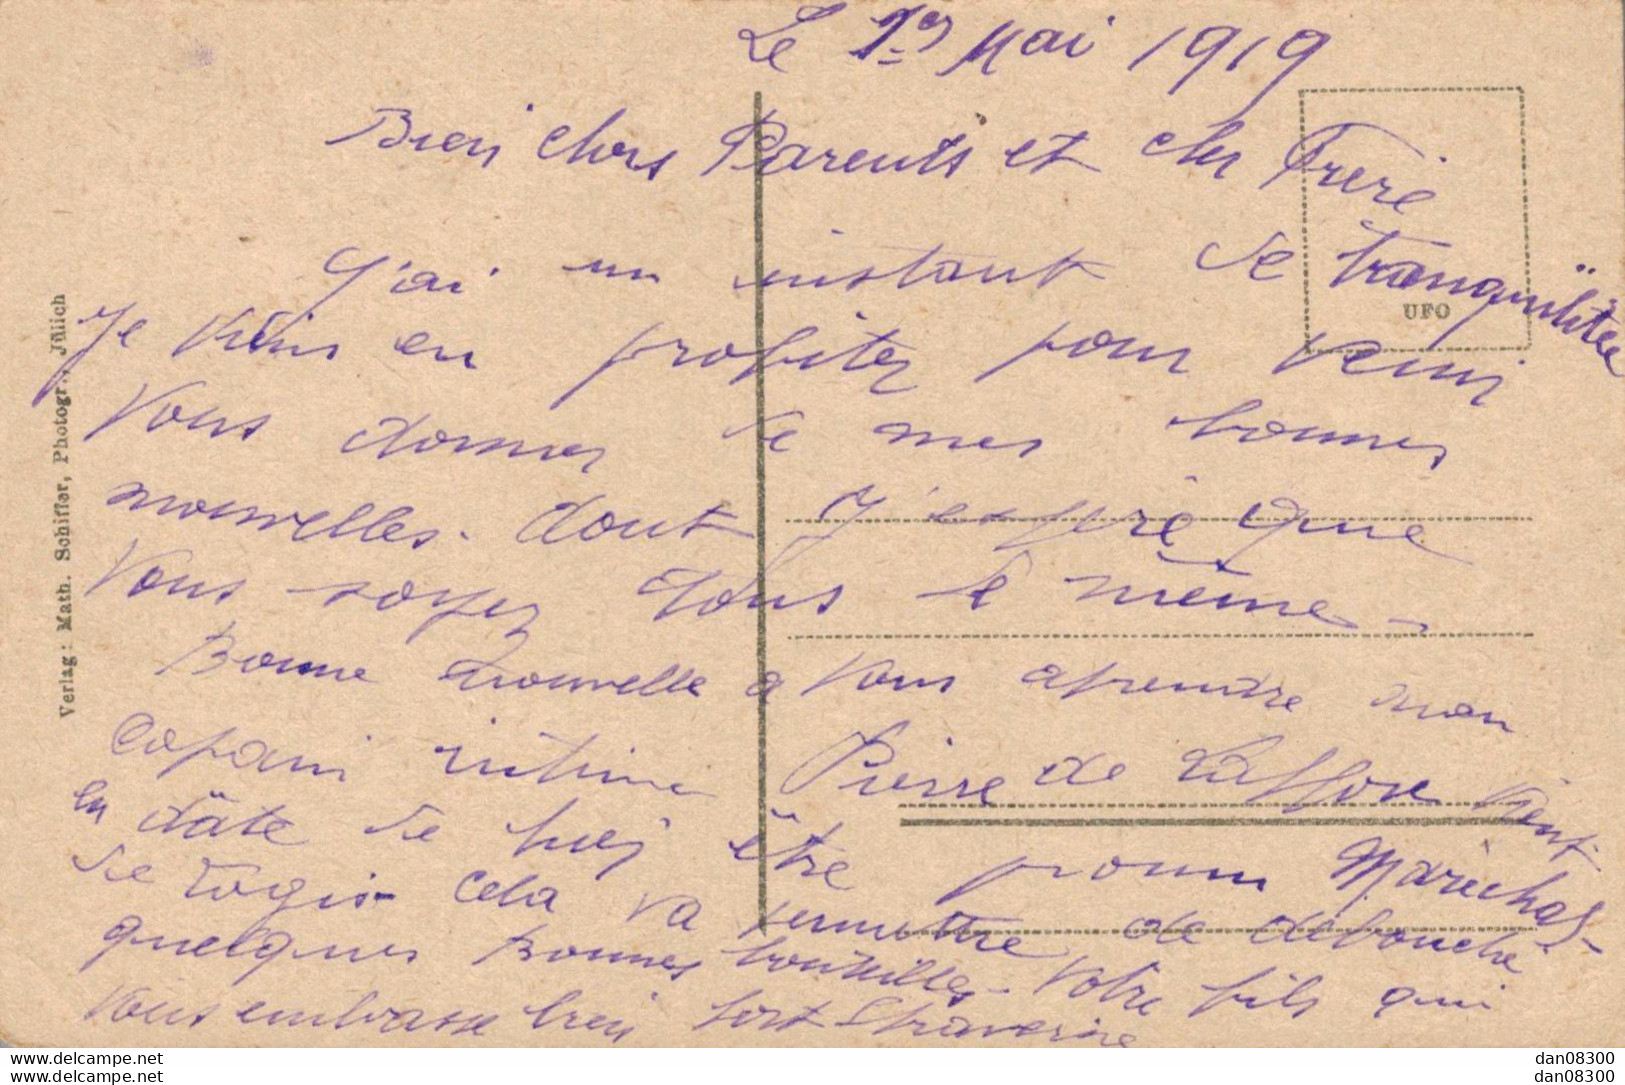 Le 1er Mai 1919
Bien chers Parents et cher Frere
J'ai un instant de tranquilitée
Je viens en profiter pour venir
Vous donner de mes bonnes
nouvelles. dont J'espère que
Vous soyez tous de même.
Bonne nouvelle a vous aprendre mon
Copain intime Pierre de vient
en date de hier être promu Maréchal-
de logis cela va permettre de débouché
quelques Bonnes bouteilles. Votre fils qui
Vous embrasse bien fort
Verlag: Math. Schiffer, Photogr., Jülich
UFO
delcampe.net
delcampe.net
dan08300
dan08300